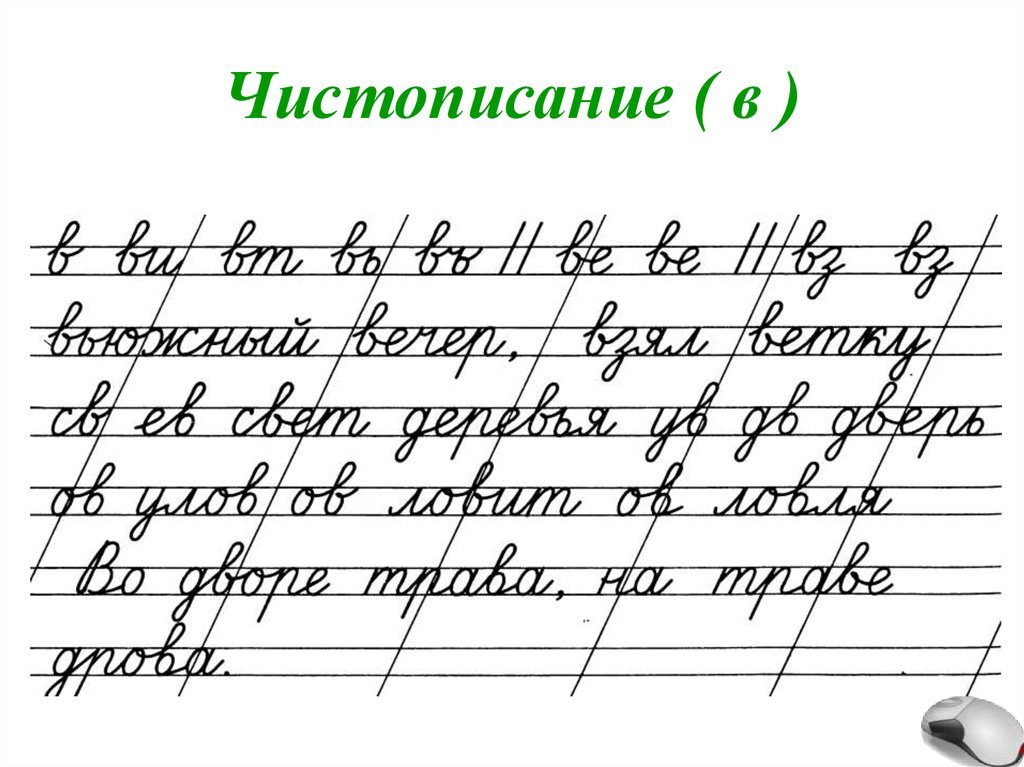 Чистописание ( в )
в ви вт вь въ || ве ве || вз вз
вьюжный вечер, взял ветку
св ев свет деревья ув дв дверь
ов улов ов ловит ов ловля
Во дворе трава, на траве
дрова.